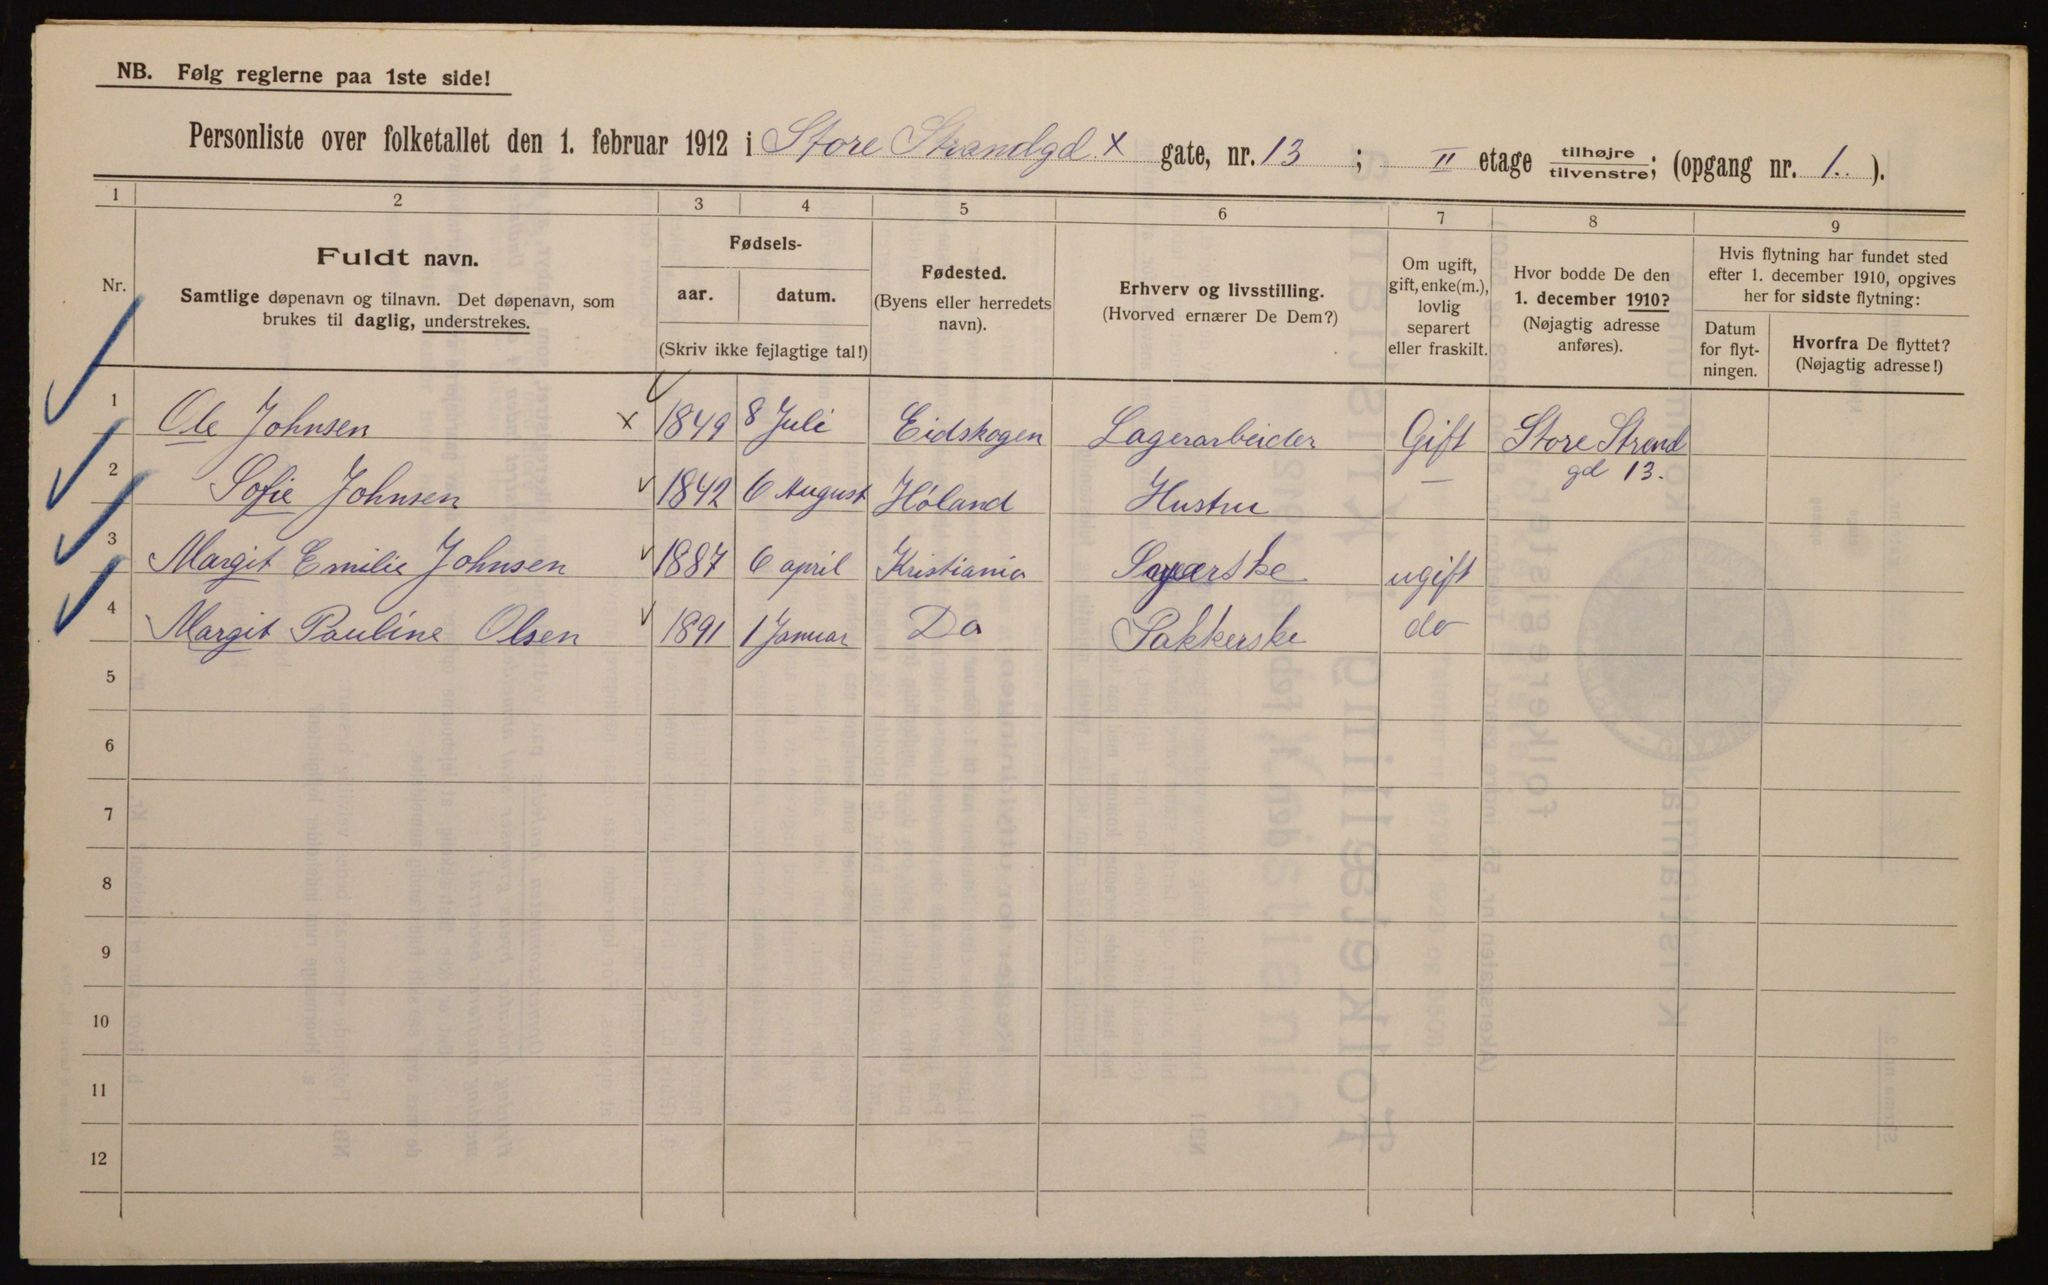 NB. Følg reglerne paa 1ste side!
Personliste over folketallet den 1. februar 1912 i Store Strandgd. x gate, nr. 13 ; II etage tilhøjre tilvenstre; (opgang nr. 1. ).
1 2 3 4 5 6 7 8 9
Nr.
Fuldt navn.
Samtlige døpenavn og tilnavn. Det døpenavn, som
brukes til daglig, understrekes.
Fødsels-
aar. datum.
(Skriv ikke fejlagtige tal!)
Fødested.
(Byens eller herredets
navn).
Erhverv og livsstilling.
(Hvorved ernærer De Dem?)
Om ugift,
gift, enke(m.),
lovlig
separert
eller fraskilt.
Hvor bodde De den
1. december 1910?
(Nøjagtig adresse
anføres).
Hvis flytning har fundet sted
efter 1. december 1910, opgives
her for sidste flytning:
Datum
for flyt-
ningen.
Hvorfra De flyttet?
(Nøjagtig adresse!)
1 Ole Johnsen x 1849 8 Juli Eidskogen Lagerarbeider Gift Store Strand
gd 13.
2 Sofie Johnsen 1842 6 August Høland Hustru —
3 Margit Emilie Johnsen 1887 6 april Kristiania ugift
4 Margit Pauline Olsen 1891 1 Januar Do Pakkerske do
5
6
7
8
9
10
11
12